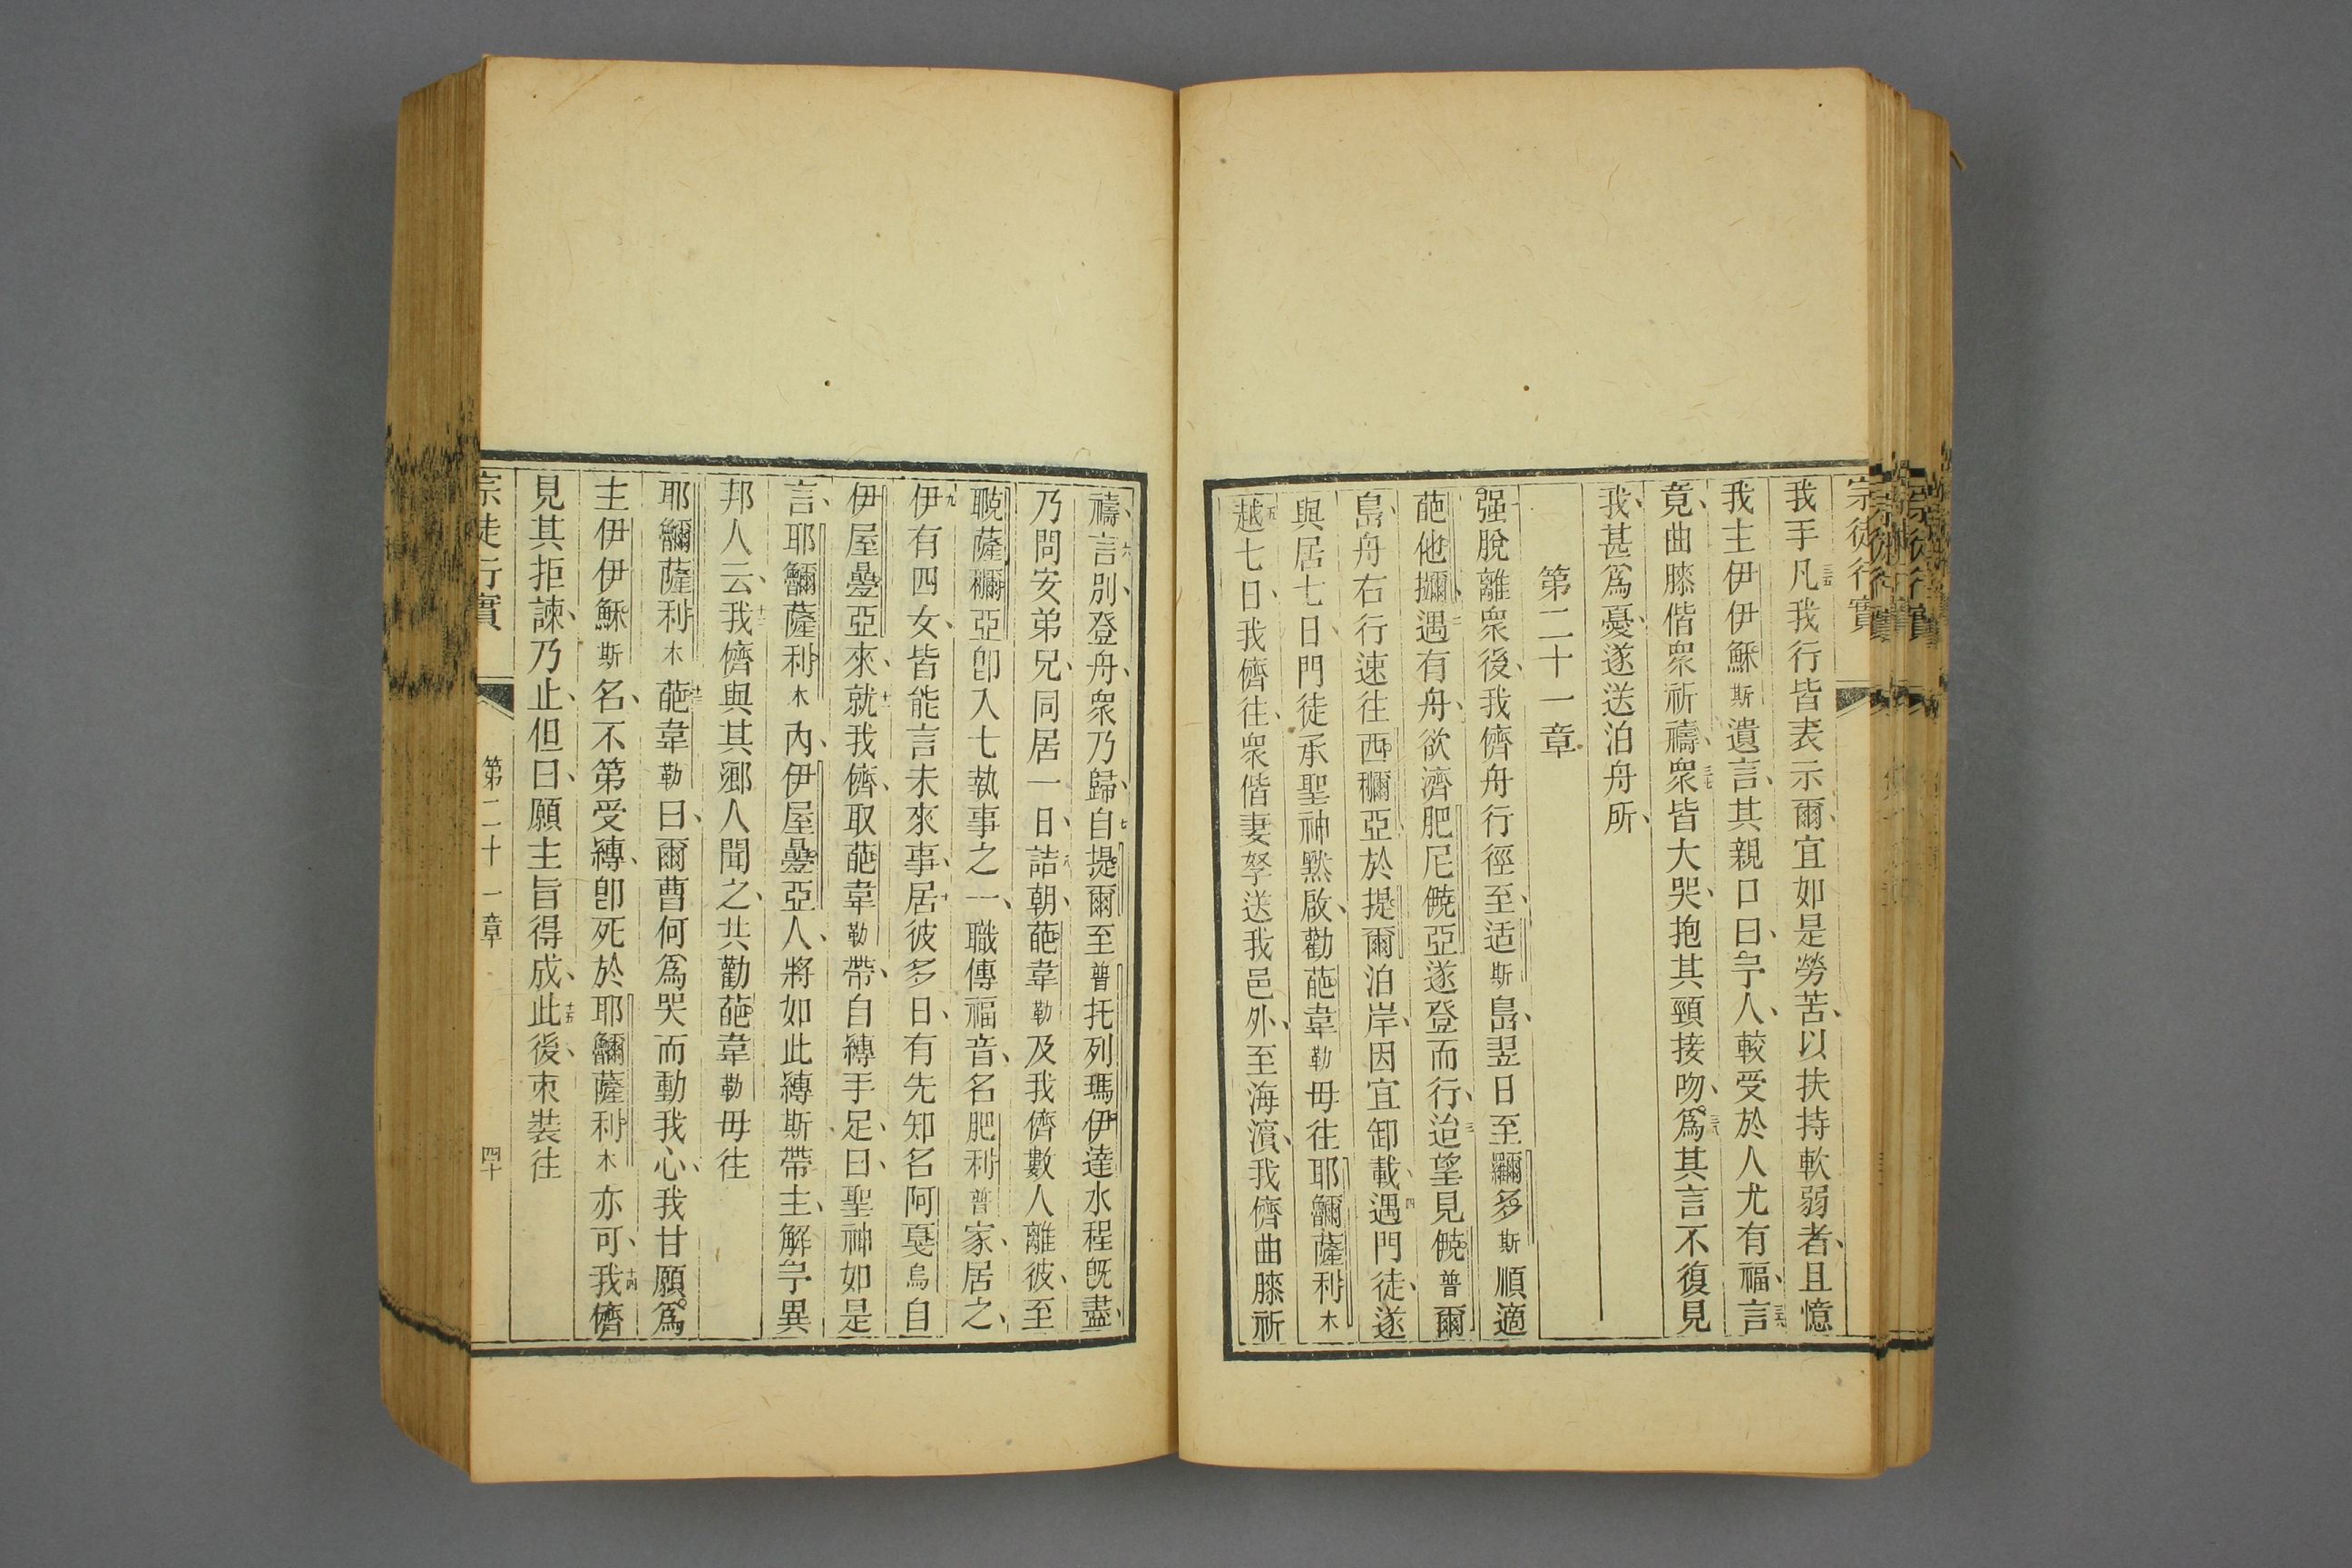 宗徒行實
我手三五凡我行皆表示爾、宜如是勞苦、以扶持軟弱者、且憶
我主伊伊穌斯遺言、其親口曰、予人、較受於人尤有福、三六言
竟、曲膝偕衆祈禱、三七衆皆大哭、抱其頸接吻、三八爲其言不復見
我、甚爲憂、遂送泊舟所、
第二十一章
一强脫離衆後、我儕舟行徑至、适斯島、翌日至多斯順適
葩他二遇有舟、欲濟肥尼亞遂登而行、三迨望見普爾
島、舟右行速往西亞、於提爾泊岸、因宜卸載、四遇門徒、遂
與居七日、門徒承聖神默啟、勸葩韋勒毋往耶薩利木
五越七日、我儕往、衆偕妻孥送我邑外、至海濱、我儕曲膝祈
禱、六言別、登舟、衆乃歸、七自提爾至普托列瑪伊達水程旣盡、
乃問安弟兄、同居一日、八詰朝、葩韋勒及我儕數人離彼、至
薩亞卽入七執事之一、職傳福音、名肥利普家、居之、
九伊有四女、皆能言未來事、十居彼多日、有先知名阿戛烏自
伊屋疊亞來、十一就我儕、取葩韋勒帶、自縛手足、曰、聖神如是
言、耶薩利木內、伊屋疊亞人、將如此縛斯帶主、解予異
邦人云、十二我儕與其鄉人聞之、共勸葩韋勒毋往
耶薩利木十三葩韋勒曰、爾曹何爲哭而動我心、我甘願爲
主伊伊穌斯名、不第受縛、卽死於耶薩利木亦可、十四我儕
見其拒諫、乃止、但曰、願主旨得成、十五此後、束裝往
宗徒行實
第二十一章
四十